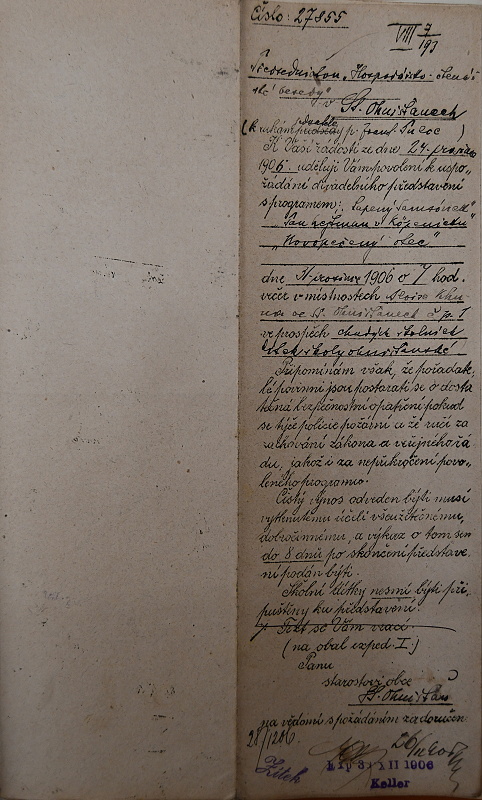 Číslo: 27855
VIII 7/193
Představenstvu „Hospodářsko-čtenář-
ské besedy" v
St. Ohništanech
(k rukám předsedy p. Frant. )
K Vaší žádosti ze dne 24. prosince
1906 uděluji Vám povolení k uspo„
řádání divadelního představení
s programem:
„Pan hejtman v Köpenicku"
„Novopečený otec"
dne 31 prosince 1906 o 7 hod.
večer v místnostech Aloise
ve St. Ohništanech č. p. 1
ve prospěch chudých školních
dítek školy ohništanské
Připomínám však, že pořadate„
lé povinni jsou postarati se o dosta
tečná bezpečnostní opatření pokud
se týče policie požární a že ručí za
zachování zákona a veřejného řá
du, jakož i za nepřekročení povo„
leného programu.
Čistý výnos odveden býti musí
vytknutému účeli všeužitečnému,
dobročinnému, a výkaz o tom sem
do 8 dnů po skončení představe
ní podán býti.
Školní dítky nesmí býti při„
puštěny ku představení.
Text se Vám vrací.
(na obal exped. I.)
Panu
starostovi obce
St. Ohništan
na vědomí s požádáním za doručení
28/12 06
Exp. 3 XII 1906
Keller